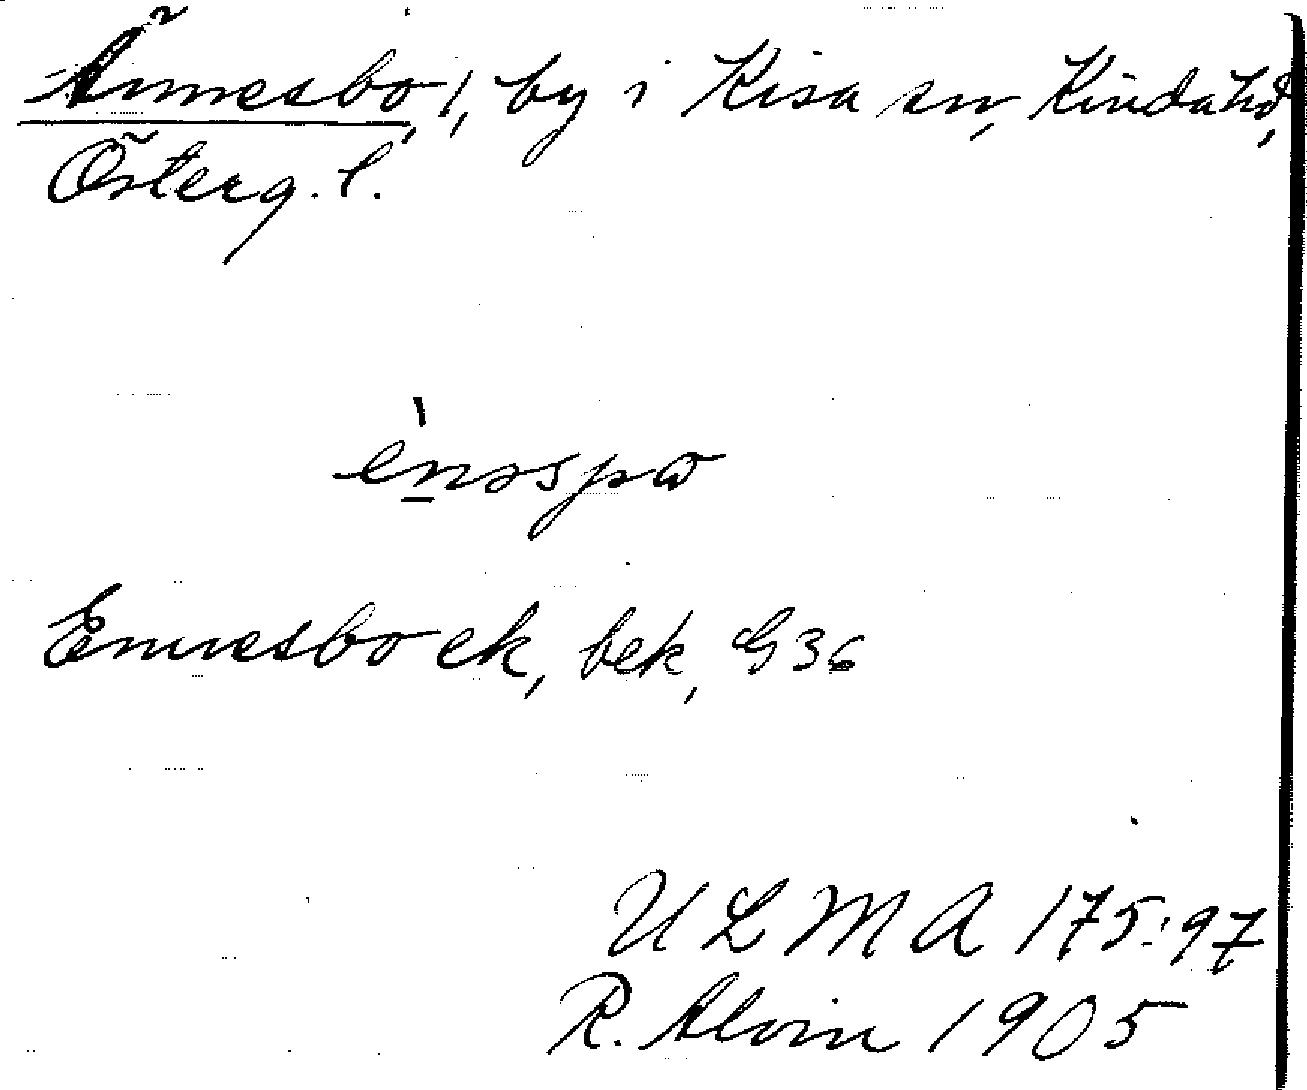 Ännesbo, 1, by i Kisa sn, Kinda hd,
Österg. l.
ènəspω
Ennesbo ek, bek, G 36
ULMA 175:97
R. Alvin 1905